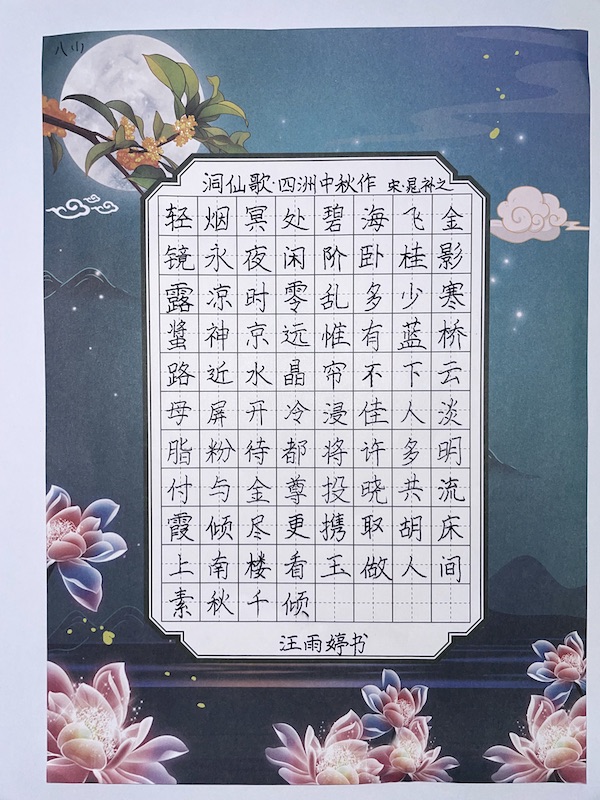 八(1)
洞仙歌·四洲中秋作 宋·晁补之
轻烟冥处碧海飞金
镜永夜闲阶卧桂影
露凉时零乱多少寒
螀神京远惟有蓝桥
路近水晶帘不下云
母屏开冷浸佳人淡
脂粉待都将许多明
付与金尊投晓共流
霞倾尽更携取胡床
上南楼看玉做人间
素秋千倾
汪雨婷书